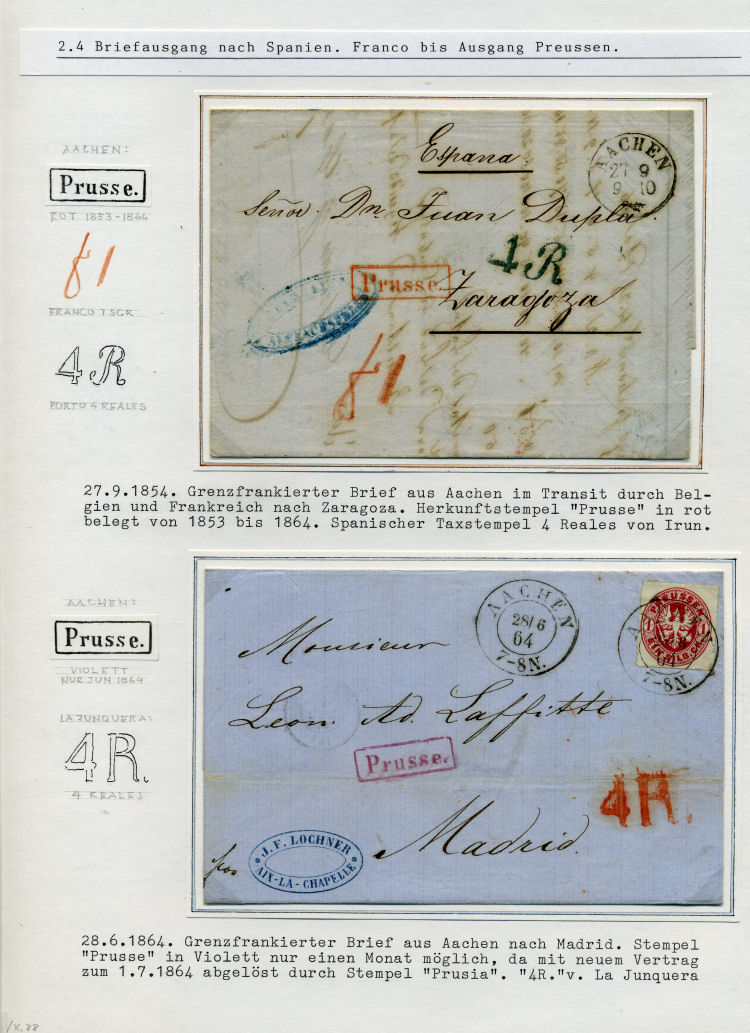 2.4 Briefausgang nach Spanien. Franco bis Ausgang Preussen.
AACHEN:
Prusse.
ROT 1853-1864
f1
FRANCO 1 SGR
4 R
PORTO 4 REALES
Espana.
AACHEN
27 9
9 10
Señor Dn Juan Dupla
4R
Prusse.
Zaragoza
f1
27.9.1854. Grenzfrankierter Brief aus Aachen im Transit durch Bel-
gien und Frankreich nach Zaragoza. Herkunftstempel "Prusse" in rot
belegt von 1853 bis 1864. Spanischer Taxstempel 4 Reales von Irun.
AACHEN:
Prusse.
VIOLETT
NUR JUN 1864
LA JUNQUERA:
4R.
4 REALES
AACHEN
28/6
64
7-8N.
PREUSSEN
1
AACHEN
64
7-8N.
Monsieur
Leon. Ad. Laffitte
Prusse.
4R.
Madrid.
J. F. LOCHNER
AIX-LA-CHAPELLE
28.6.1864. Grenzfrankierter Brief aus Aachen nach Madrid. Stempel
"Prusse" in Violett nur einen Monat möglich, da mit neuem Vertrag
zum 1.7.1864 abgelöst durch Stempel "Prusia". "4R."v. La Junquera